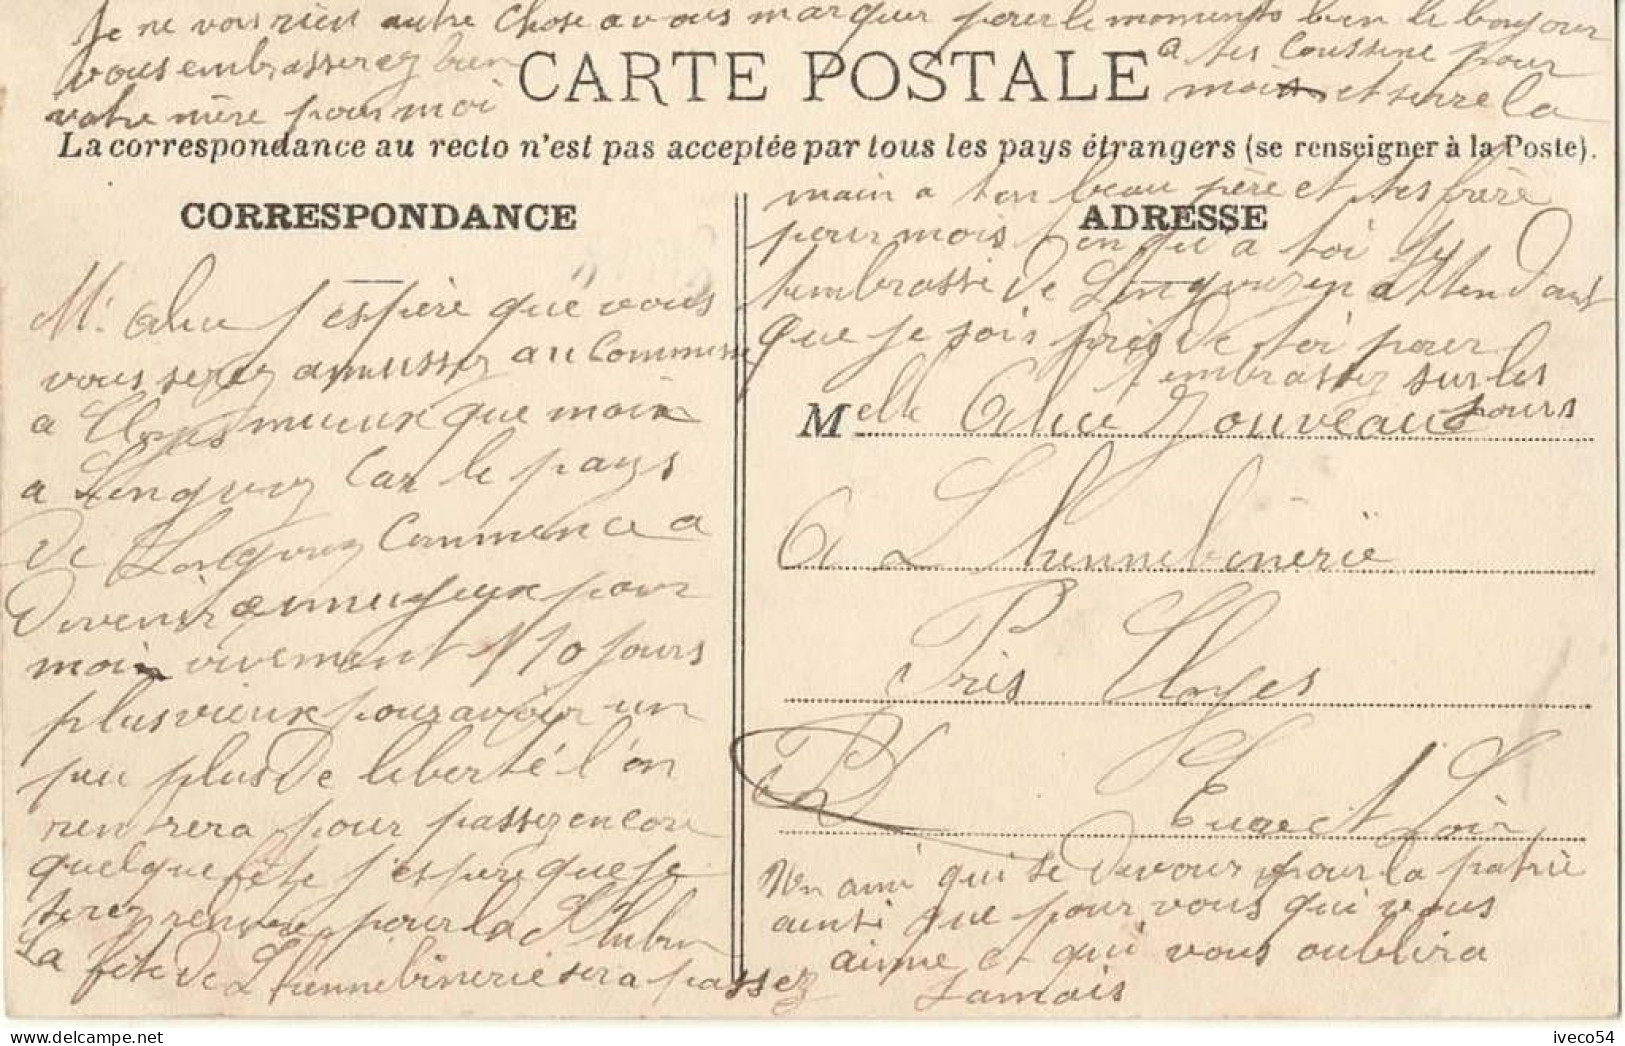 Je ne vois rien autre chose a vous marquer pour le moments bien le bonjour
vous embrasserez bien
votre mère pour moi
a tes coussine pour
moi et serre la
CARTE POSTALE
La correspondance au recto n'est pas acceptée par tous les pays étrangers (se renseigner à la Poste).
CORRESPONDANCE
M. Alice j'espère que vous
vous serez amusser au Commerce
a Cloyes mieux que moi
a Longwy Car le pays
De Longwy Commence a
Devenir ennuyeux pour
moi vivement 10 jours
plus vieux pour avoir un
peu plus De liberté l'on
rentrera pour passez encore
quelque fête j'espere que je
serez pour la St Aubin
La fête De L'hennebinerie sera passez
main a ton beau père et tes frère
ADRESSE
pour mois a toi Je
t'embrasse De Longwy en attendant
que je sois près De toi pour
t'embrassez sur les
jours
Melle Alice Gouveau
A L'hennebinerie
Près Cloyes
Eure et Loir
Un ami qui se Devoue pour la patrie
ainsi que pour vous qui vous
aime et qui vous oublira
Jamais
iveco54